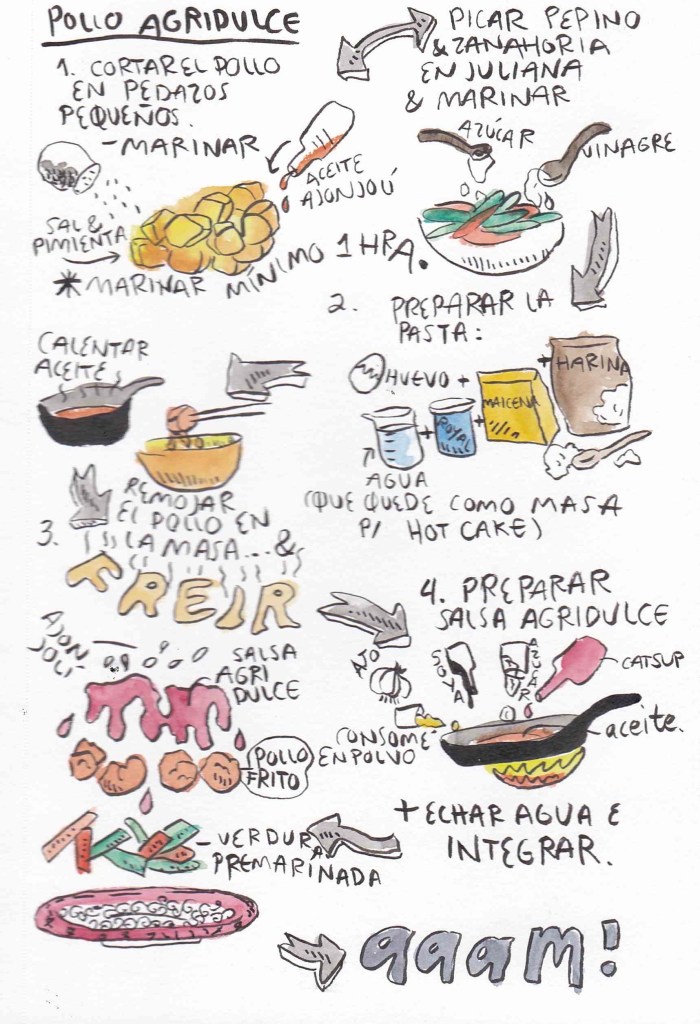 POLLO AGRIDULCE
1. CORTAR EL POLLO
EN PEDAZOS
PEQUEÑOS.
-MARINAR
ACEITE
AJONJOLÍ
SAL &
PIMIENTA
* MARINAR MÍNIMO 1 HRA.
PICAR PEPINO
& ZANAHORIA
EN JULIANA
& MARINAR
AZÚCAR
VINAGRE
2. PREPARAR LA
PASTA:
HUEVO +
MAICENA
+ HARINA
+
ROYAL
+
AGUA
(QUE QUEDE COMO MASA
P/ HOT CAKE)
CALENTAR
ACEITE
3. REMOJAR
EL POLLO EN
LA MASA... &
FREIR
4. PREPARAR
SALSA AGRIDULCE
AJO
SOYA
AZUCAR
CATSUP
CONSOMÉ
EN POLVO
aceite.
+ ECHAR AGUA E
INTEGRAR.
AJON-
JOLI
SALSA
AGRI
DULCE
POLLO
FRITO
- VERDURA
PREMARINADA
aaaM!